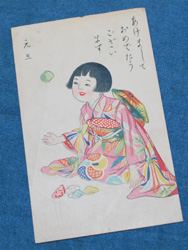 あけまして
おめでたう
ござい
ます
元旦